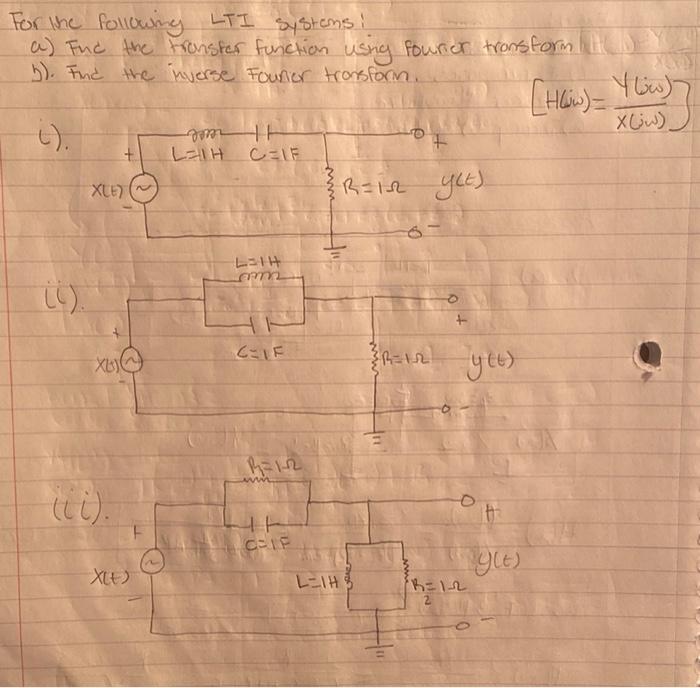 For the following LTI systems:
a) Find the transfer function using fourier transform
b). Find the inverse Fourier transform.
[H(jω)= Y(jω)/X(jω)]
i).
L=1H C=1F
+
+
X(t)
R=1Ω y(t)
-
-
L=1H
ii).
+
+
C=1F
X(t)
R=1Ω y(t)
-
-
R=1Ω
iii).
+
+
C=1F
X(t)
y(t)
L=1H
R=1Ω
2
-
-